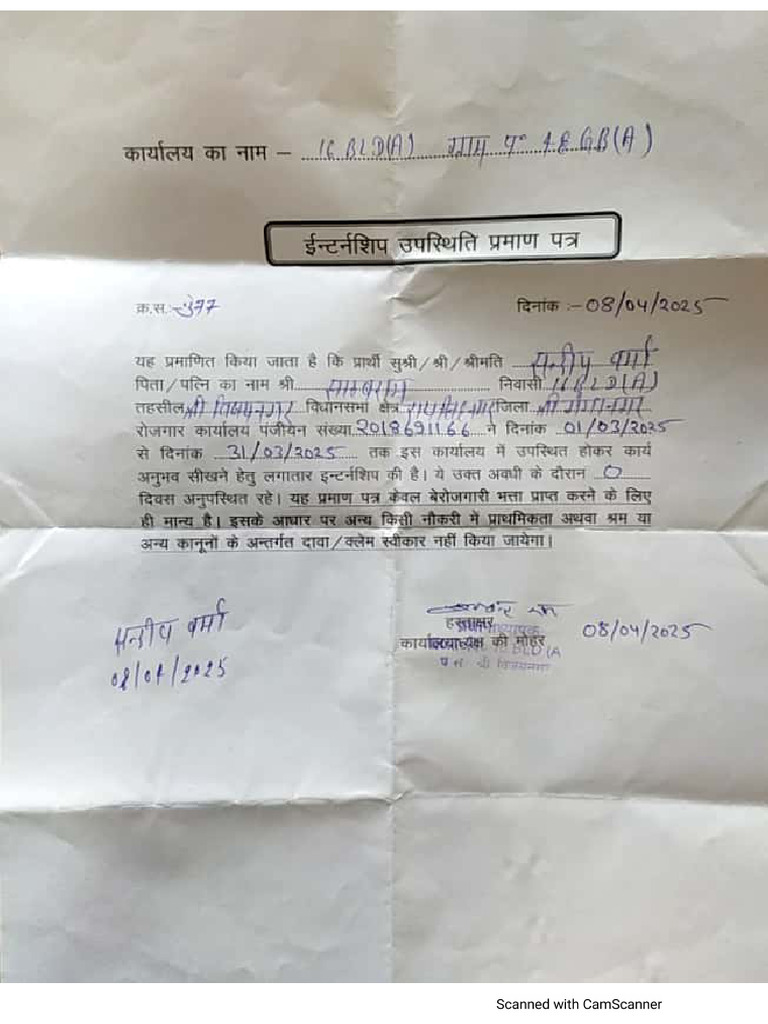 कार्यालय का नाम – 16 BLD(A) ग्राम पं०
ईन्टर्नशिप उपस्थिति प्रमाण पत्र
क्र.स. 377 दिनांक :- 08/04/2025
यह प्रमाणित किया जाता है कि प्रार्थी सुश्री/श्री/श्रीमति वर्मा
पिता/पत्नि का नाम श्री निवासी 16BLD(A)
तहसील श्री विजयनगर विधानसभा क्षेत्र रायसिंहनगर जिला श्री गंगानगर
रोजगार कार्यालय पंजीयन संख्या 2018691166 ने दिनांक 01/03/2025
से दिनांक 31/03/2025 तक इस कार्यालय में उपस्थित होकर कार्य
अनुभव सीखने हेतु लगातार इन्टर्नशिप की है। ये उक्त अवधी के दौरान 0
दिवस अनुपस्थित रहे। यह प्रमाण पत्र केवल बेरोजगारी भत्ता प्राप्त करने के लिए
ही मान्य है। इसके आधार पर अन्य किसी नौकरी में प्राथमिकता अथवा श्रम या
अन्य कानूनों के अन्तर्गत दावा/क्लेम स्वीकार नहीं किया जायेगा।
वर्मा
08/04/2025
हस्ताक्षर
कार्यालयाध्यक्ष की मोहर 08/04/2025
Scanned with CamScanner